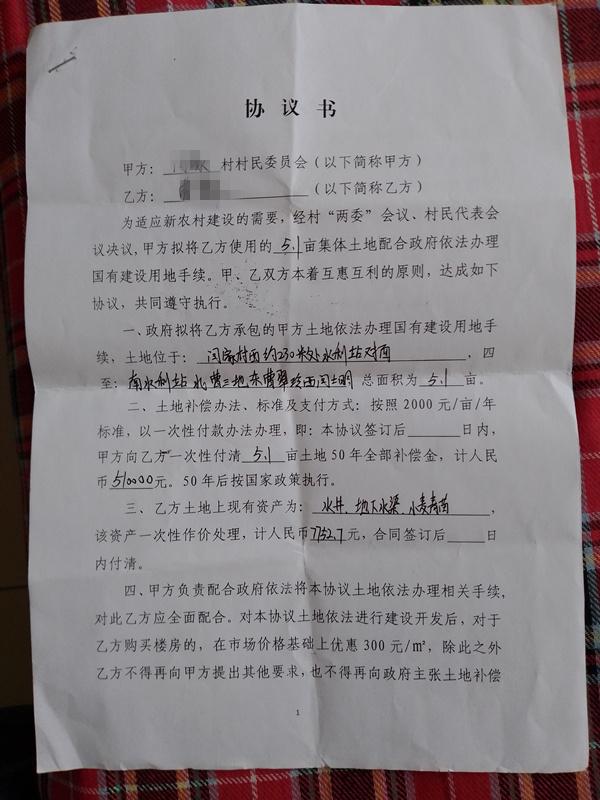 协 议 书
甲方： 村村民委员会（以下简称甲方）
乙方： （以下简称乙方）
为适应新农村建设的需要，经村“两委”会议、村民代表会
议决议，甲方拟将乙方使用的 5.1 亩集体土地配合政府依法办理
国有建设用地手续。甲、乙双方本着互惠互利的原则，达成如下
协议，共同遵守执行。
一、政府拟将乙方承包的甲方土地依法办理国有建设用地手
续，土地位于： 闫家村西约230米处水利站对面 ，四
至：南水利站 北曹三地 东曹翠玲 西闫士明 总面积为 5.1 亩。
二、土地补偿办法、标准及支付方式：按照 2000 元/亩/年
标准，以一次性付款办法办理，即：本协议签订后 日内，
甲方向乙方一次性付清 5.1 亩土地 50 年全部补偿金，计人民
币510000元。50 年后按国家政策执行。
三、乙方土地上现有资产为： 水井、地下水渠、小麦青苗 ，
该资产一次性作价处理，计人民币77527元，合同签订后 日
内付清。
四、甲方负责配合政府依法将本协议土地依法办理相关手续，
对此乙方应全面配合。对本协议土地依法进行建设开发后，对于
乙方购买楼房的，在市场价格基础上优惠 300 元/㎡，除此之外
乙方不得再向甲方提出其他要求，也不得再向政府主张土地补偿
1